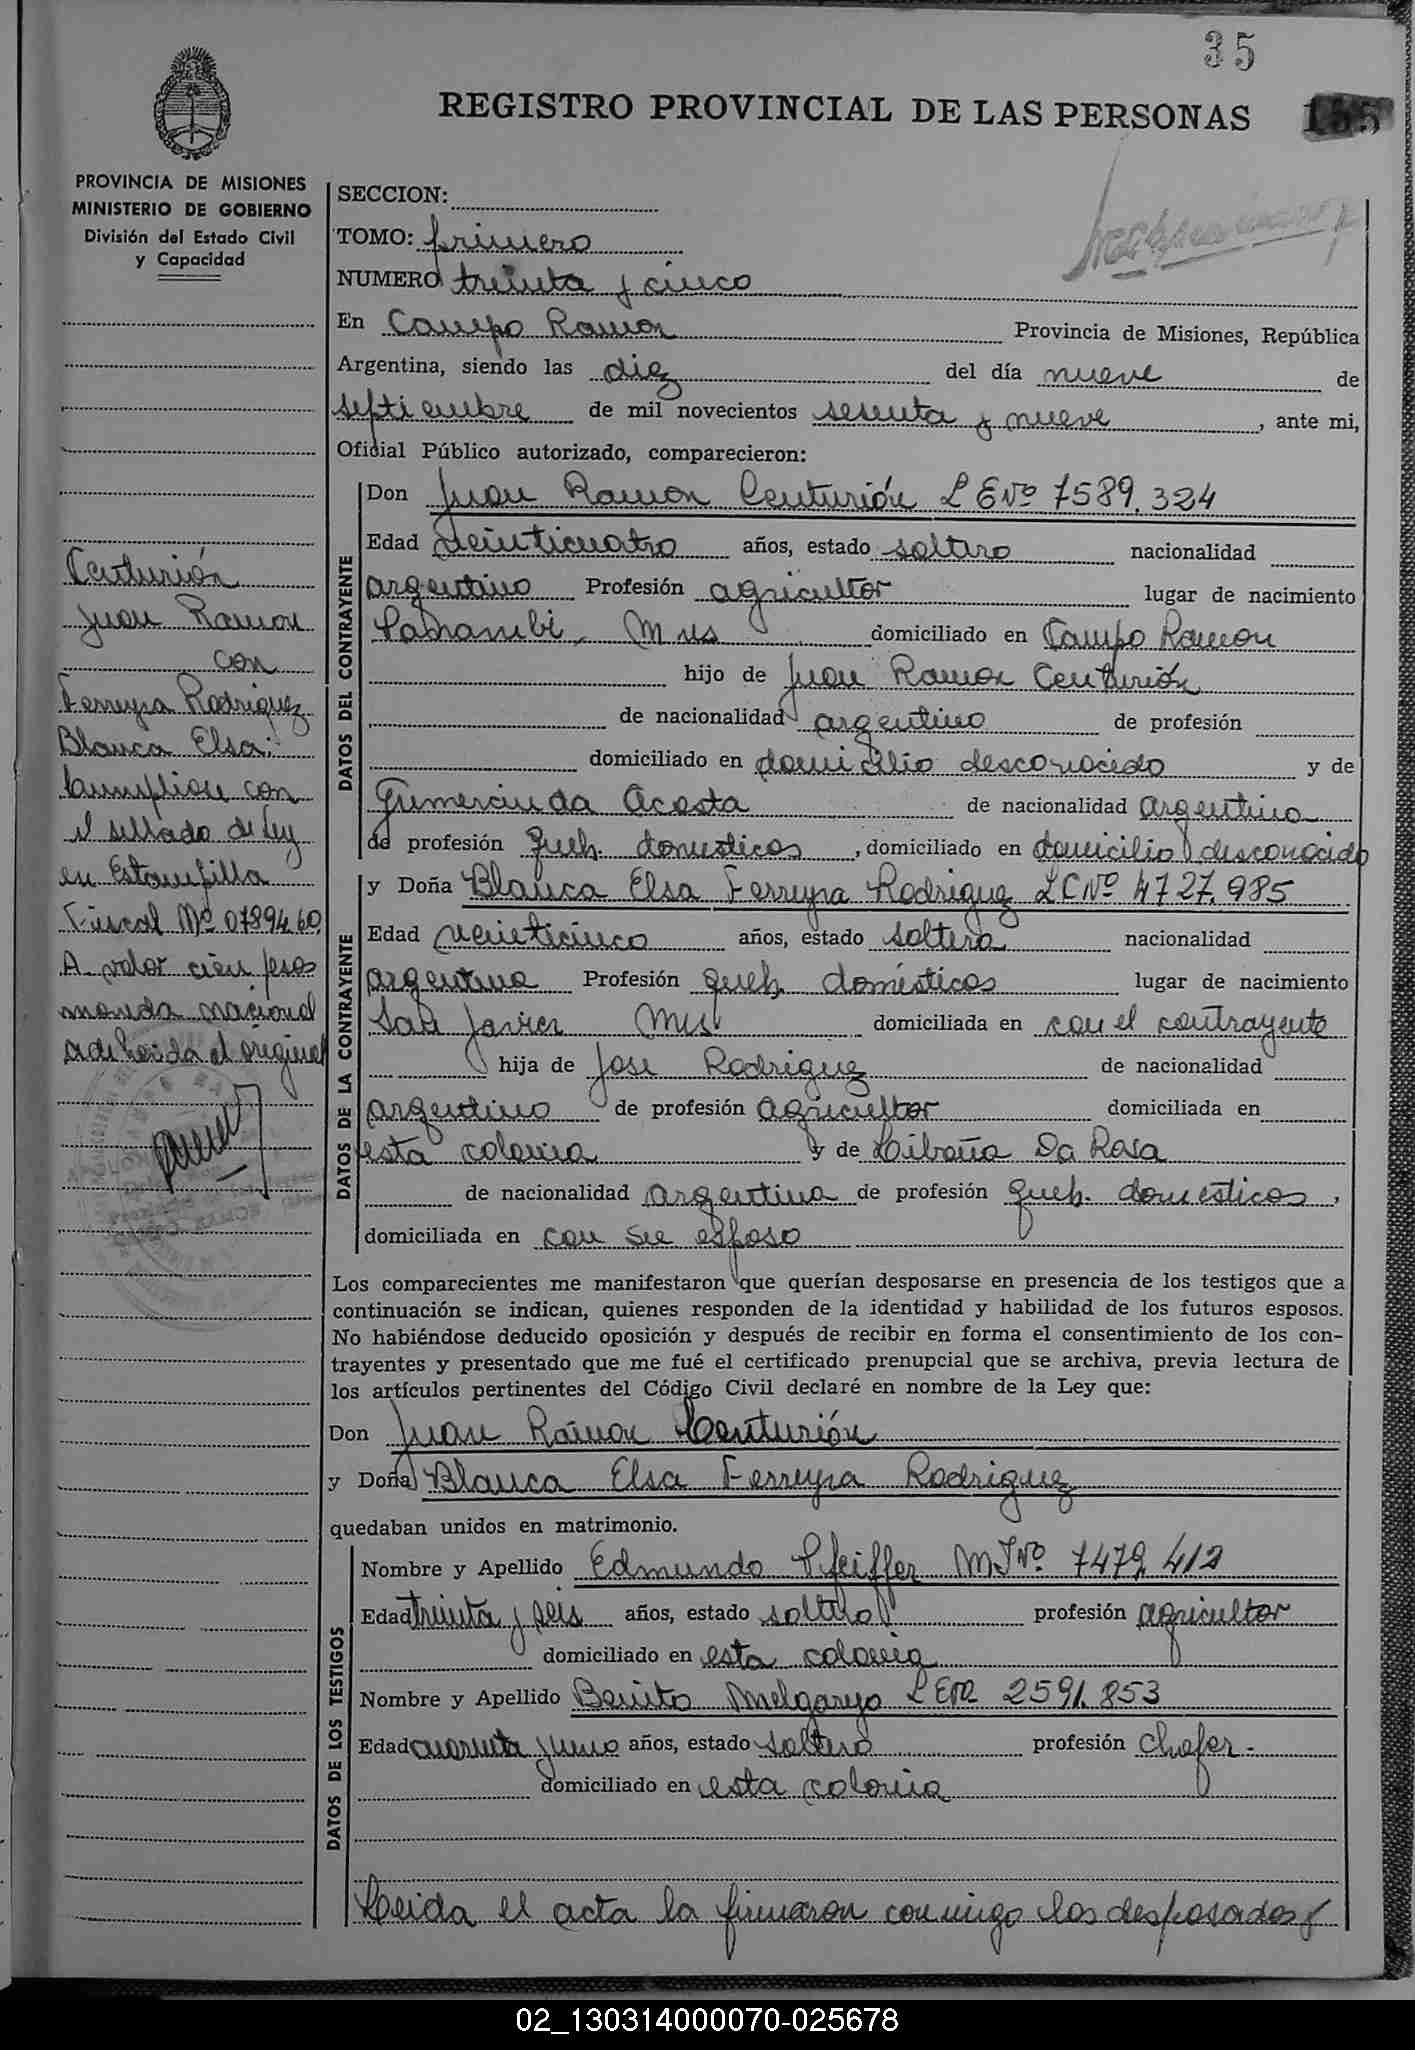 35
REGISTRO PROVINCIAL DE LAS PERSONAS 155
PROVINCIA DE MISIONES
MINISTERIO DE GOBIERNO
División del Estado Civil
y Capacidad
Centurión
Juan Ramon
con
Ferreyra Rodriguez
Blanca Elsa:
Cumplion con
el sellado de Ley
en Estampilla
Fiscal Nº 0789460
A valor cien pesos
moneda nacional
adeherida al original
SECCION:
TOMO: primero
NUMERO treinta y cinco
En Campo Ramon Provincia de Misiones, República
Argentina, siendo las diez del día nueve de
septiembre de mil novecientos sesenta y nueve, ante mi,
Oficial Público autorizado, comparecieron:
DATOS DEL CONTRAYENTE
Don Juan Ramon Centurión L E Nº 7589.324
Edad veinticuatro años, estado soltero nacionalidad
argentino Profesión agricultor lugar de nacimiento
Panambi, Mnes domiciliado en Campo Ramon
hijo de Juan Ramon Centurión
de nacionalidad argentino de profesión
domiciliado en domicilio desconocido y de
Gumercinda Acosta de nacionalidad argentina
de profesión queh. domesticos, domiciliado en domicilio desconocido
DATOS DE LA CONTRAYENTE
y Doña Blanca Elsa Ferreyra Rodriguez L C Nº 4727.985
Edad veinticinco años, estado soltera nacionalidad
argentina Profesión queh. domésticos lugar de nacimiento
San Javier Mns domiciliada en con el contrayente
hija de Jose Rodriguez de nacionalidad
argentino de profesión Agricultor domiciliada en
esta colonia y de Libraña Da Rosa
de nacionalidad argentina de profesión queh. domesticos,
domiciliada en con su esposo
Los comparecientes me manifestaron que querían desposarse en presencia de los testigos que a
continuación se indican, quienes responden de la identidad y habilidad de los futuros esposos.
No habiéndose deducido oposición y después de recibir en forma el consentimiento de los con-
trayentes y presentado que me fué el certificado prenupcial que se archiva, previa lectura de
los artículos pertinentes del Código Civil declaré en nombre de la Ley que:
Don Juan Ramon Centurión
y Doña Blanca Elsa Ferreyra Rodriguez
quedaban unidos en matrimonio.
DATOS DE LOS TESTIGOS
Nombre y Apellido Edmundo Pfeiffer M I Nº 7479.412
Edad treinta y seis años, estado soltero profesión agricultor
domiciliado en esta colonia
Nombre y Apellido Benito Melgarejo L E Nº 2591.853
Edad cuarenta y uno años, estado soltero profesión Chofer.
domiciliado en esta colonia
Leida el acta la firmaron conmigo los desposados y
02_130314000070-025678